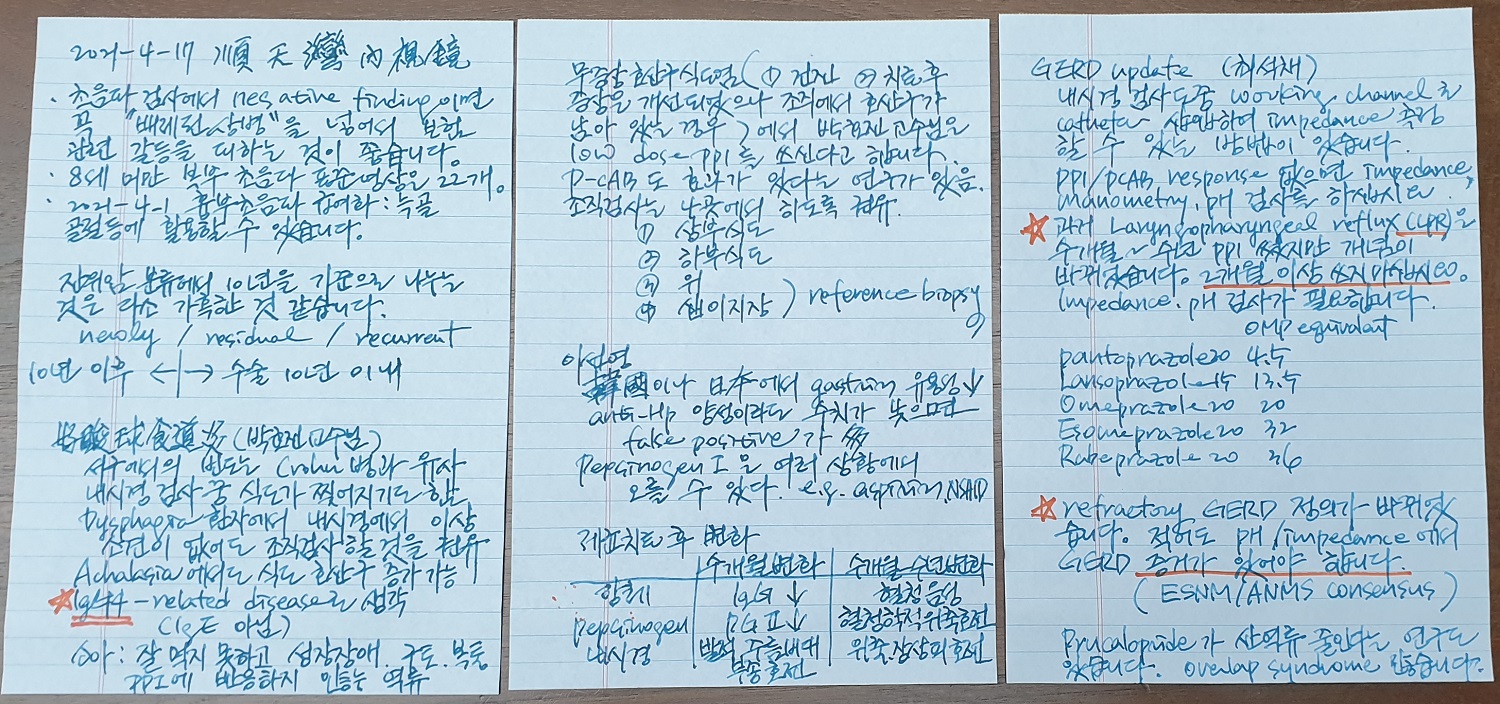 2021-4-17 順天灣內視鏡
· 초음파 검사에서 negative finding이면
꼭 "배제된 상병"을 넣어서 보험
관련 갈등을 피하는 것이 좋습니다.
· 8세 미만 복부 초음파 표준영상은 22개.
· 2021-4-1 흉부초음파 급여화 : 늑골
골절등에 활용할 수 있습니다.
잔위암 분류에서 10년을 기준으로 나누는
것은 다소 가혹한 것 같습니다.
newly / residual / recurrent
10년 이후 ←|→ 수술 10년 이내
好酸球食道炎 (박효진 교수님)
서구에서의 빈도는 Crohn병과 유사
내시경 검사 중 식도가 찢어지기도 한다
Dysphagia 환자에서 내시경에서 이상
소견이 없어도 조직검사 할 것을 권유
Achalasia에서도 식도 호산구 증가 가능
☆ IgG4-related disease로 생각
(IgE 아님)
소아 : 잘 먹지 못하고 성장장애. 구토. 복통
PPI에 반응하지 않는 역류
무증상 호산구 식도염 (① 검진 ② 치료 후
증상은 개선되었으나 조직에서 호산구가
남아 있는 경우) 에서 박효진 교수님은
low dose ppi를 쓰신다고 합니다.
P-CAB도 효과가 있다는 연구가 있음.
조직검사는 4곳에서 하도록 권유
① 상부식도
② 하부식도
③ 위
④ 십이지장 ) reference biopsy
이선영
韓國이나 日本에서 gastrin 유용성↓
anti-Hp 양성이라도 수치가 낮으면
false positive가 多
Pepsinogen I은 여러 상황에서
오를 수 있다. e.g. aspirin, NSAID
제균치료 후 변화
수개월 변화 수개월~수년변화
항체 IgG ↓ 혈청 음성
pepsinogen PG II↓ 혈청학적위축호전
내시경 발적, 주름비대 위축, 장상피호전
부종호전
GERD update (최석채)
내시경 검사도중 working channel로
catheter 삽입하여 impedance 측정
할 수 있는 방법이 있습니다.
PPI/PCAB response 없으면 impedance,
manometry, pH 검사를 하십시요.
☆ 과거 Laryngopharyngeal reflux (LPR)은
수개월~수년 PPI 썼지만 개념이
바뀌었습니다. 2개월 이상 쓰지마십시요.
Impedance. pH 검사가 필요합니다.
OMP equivalent
pantoprazole 20 4.5
Lansoprazole 15 13.5
Omeprazole 20 20
Esomeprazole 20 32
Rabeprazole 20 36
☆ refractory GERD 정의가 바뀌었
습니다. 적어도 pH/impedance에서
GERD 증거가 있어야 합니다.
(ESNM/ANMS consensus)
Prucalopride가 산역류 줄인다는 연구도
있습니다. overlap syndrome 많습니다.